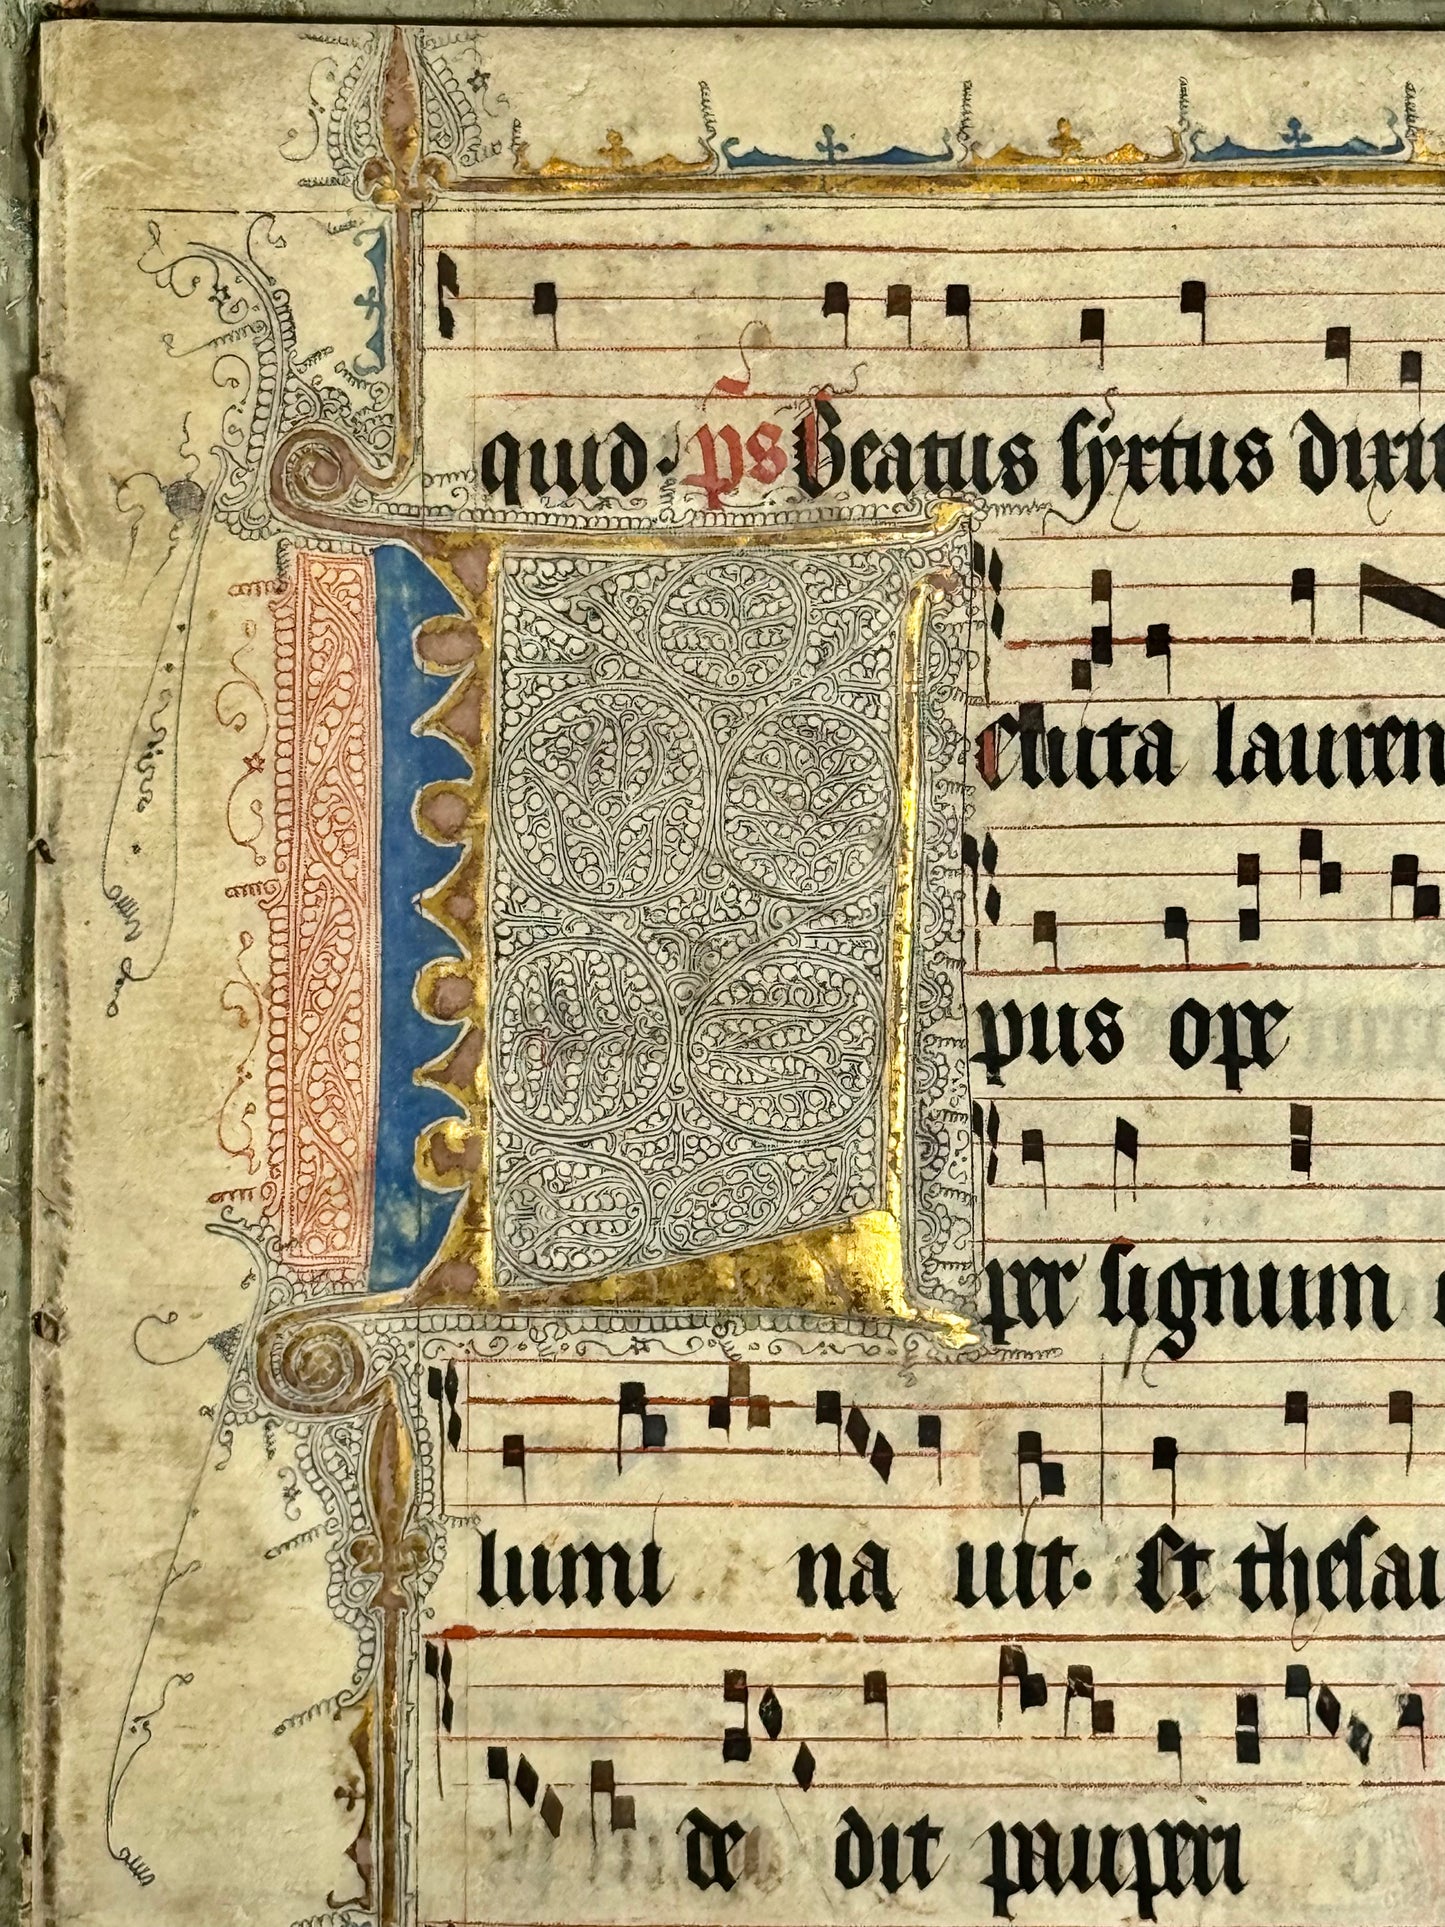 quid. ps Beatus syxtus dixit
Leuita lauren
pus ope
per signum c
lumi na uit. Et thesau
de dit pauperi